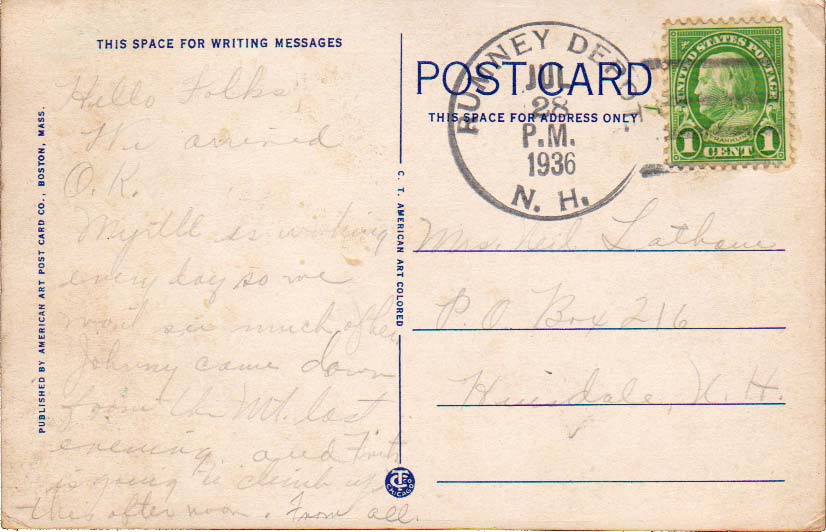 THIS SPACE FOR WRITING MESSAGES
Hello Folks
We arrived
O.K.
Myrtle is working
every day so we
won't see much of her
Johnny came down
from the Mt. last
evening and
is going to climb up
this afternoon. From all.
PUBLISHED BY AMERICAN ART POST CARD CO., BOSTON, MASS.
C. T. AMERICAN ART COLORED
POST CARD
THIS SPACE FOR ADDRESS ONLY
RUMNEY DEPOT
JUL
28
P.M.
1936
N. H.
UNITED STATES POSTAGE
FRANKLIN
1 CENT 1
Mrs. Neil Latham
P.O. Box 216
Hinsdale, N.H.
CT CO
CHICAGO